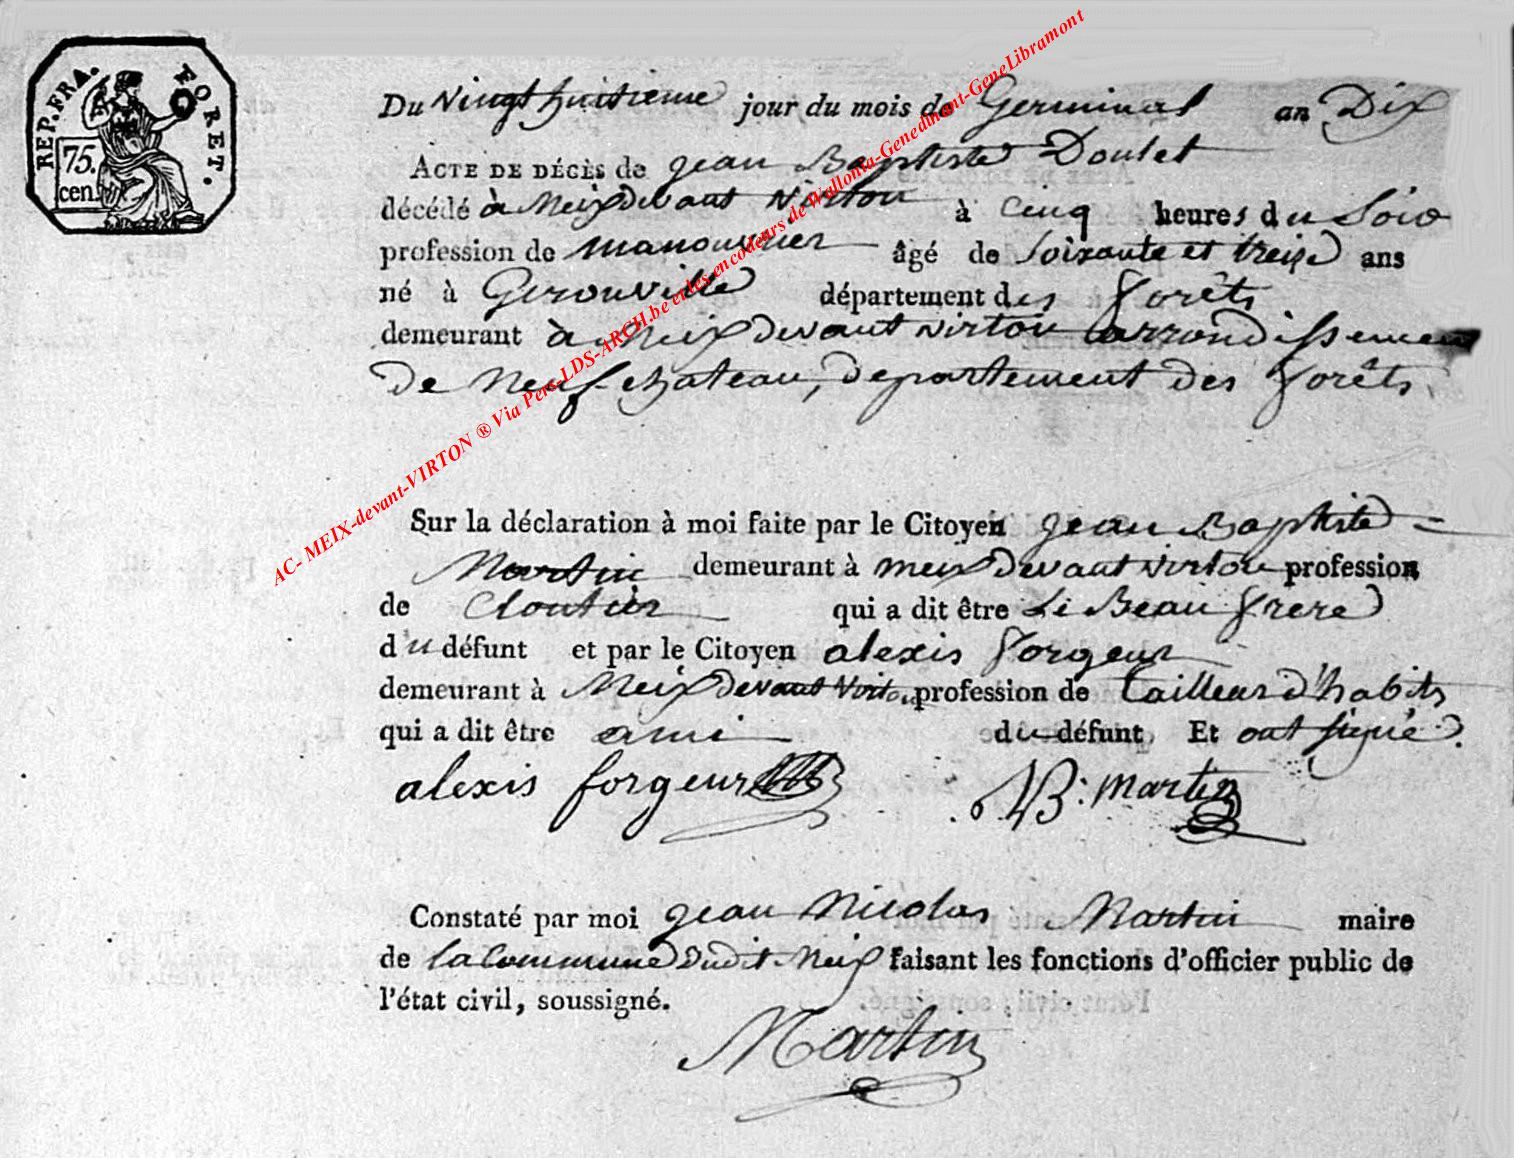 REP. FRA. FORET.
75.
cen.
Du vingt huitieme jour du mois de Germinal an Dix
ACTE DE DÉCÈS de jean Baptiste Doulet
décédé à Meix devant Virton à cinq heures du Soir
profession de manouvrier âgé de soixante et treize ans
né à Gerouville département des forêts
demeurant à Meix devant virton arrondissement
de Neufchateau, departement des forêts
Sur la déclaration à moi faite par le Citoyen jean Baptiste
Martin demeurant à meix devant virton profession
de Cloutier qui a dit être Le Beau frere
du défunt et par le Citoyen alexis forgeur
demeurant à Meix devant Virton profession de tailleur d'habits
qui a dit être ami du défunt Et ont signé.
alexis forgeur JB: martin
Constaté par moi jean Nicolas Martin maire
de la Commune dudit Meix faisant les fonctions d'officier public de
l'état civil, soussigné.
Martin
AC- MEIX-devant-VIRTON ® Via Pers-LDS-ARCH.be et les encodeurs de Wallonia-Genedinant-GeneLibramont